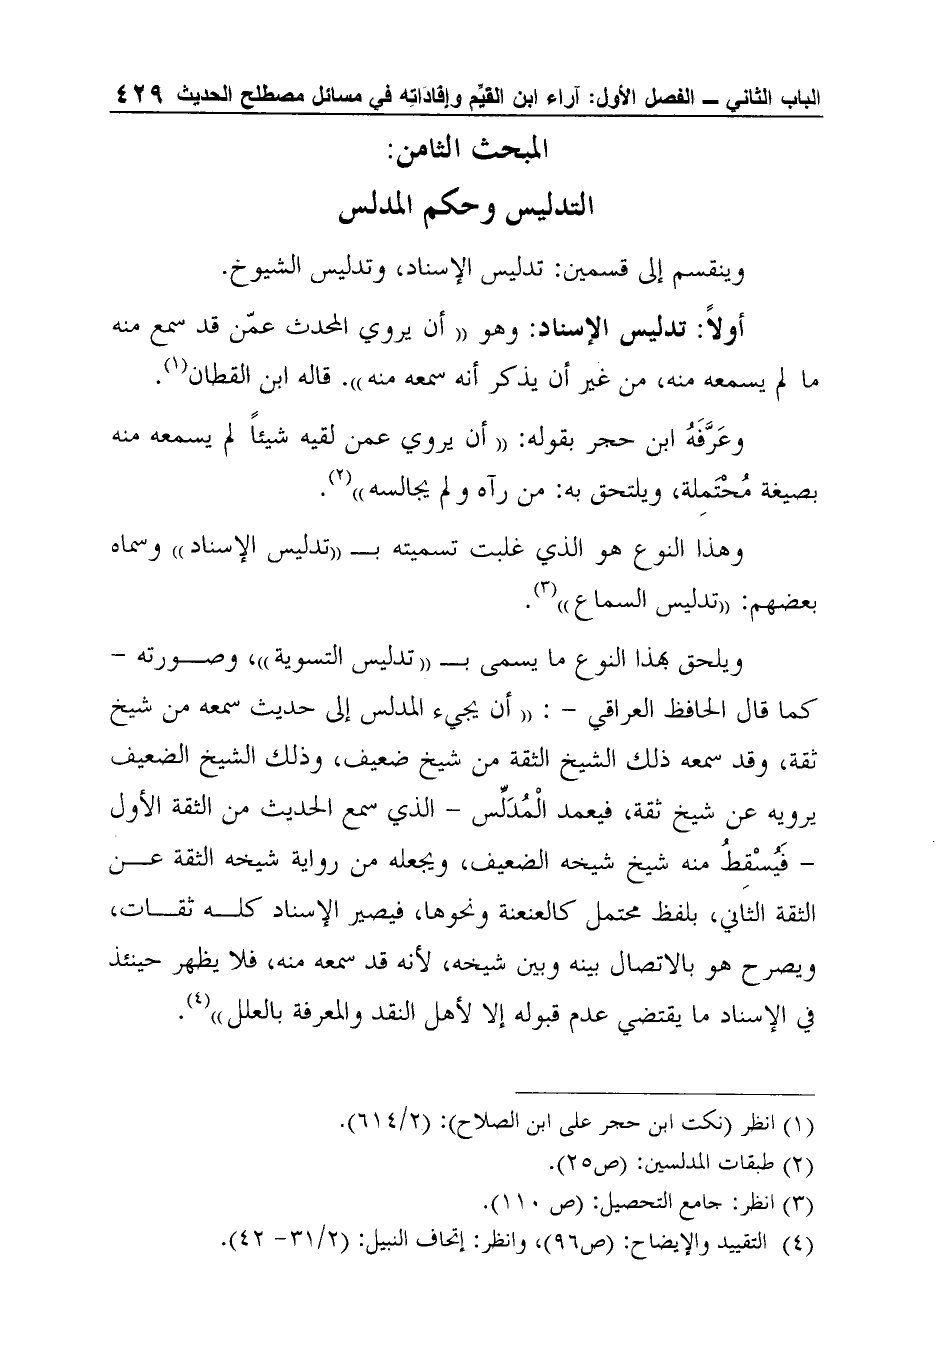 الباب الثاني ــ الفصل الأول: آراء ابن القيِّم وإفاداته في مسائل مصطلح الحديث ٤٢٩
المبحث الثامن:
التدليس وحكم المدلس
وينقسم إلى قسمين: تدليس الإسناد، وتدليس الشيوخ.
أولاً: تدليس الإسناد: وهو (( أن يروي المحدث عمّن قد سمع منه
ما لم يسمعه منه، من غير أن يذكر أنه سمعه منه)). قاله ابن القطان(١).
وعَرَّفَهُ ابن حجر بقوله: (( أن يروي عمن لقيه شيئاً لم يسمعه منه
بصيغة مُحْتَمِلة، ويلتحق به: من رآه ولم يجالسه))(٢).
وهذا النوع هو الذي غلبت تسميته بــ ((تدليس الإسناد)) وسماه
بعضهم: ((تدليس السماع))(٣).
ويلحق بهذا النوع ما يسمى بــ (( تدليس التسوية))، وصــورته –
كما قال الحافظ العراقي – : (( أن يجيء المدلس إلى حديث سمعه من شيخ
ثقة، وقد سمعه ذلك الشيخ الثقة من شيخ ضعيف، وذلك الشيخ الضعيف
يرويه عن شيخ ثقة، فيعمد الْمُدَلِّس – الذي سمع الحديث من الثقة الأول
– فَيُسْقِطُ منه شيخ شيخه الضعيف، ويجعله من رواية شيخه الثقة عــن
الثقة الثاني، بلفظ محتمل كالعنعنة ونحوها، فيصير الإسناد كلــه ثقــات،
ويصرح هو بالاتصال بينه وبين شيخه، لأنه قد سمعه منه، فلا يظهر حينئذ
في الإسناد ما يقتضي عدم قبوله إلا لأهل النقد والمعرفة بالعلل))(٤).
(١) انظر (نكت ابن حجر على ابن الصلاح): (٦١٤/٢).
(٢) طبقات المدلسين: (ص٢٥).
(٣) انظر: جامع التحصيل: (ص ١١٠).
(٤) التقييد والإيضاح: (ص٩٦)، وانظر: إتحاف النبيل: (٣١/٢– ٤٢).